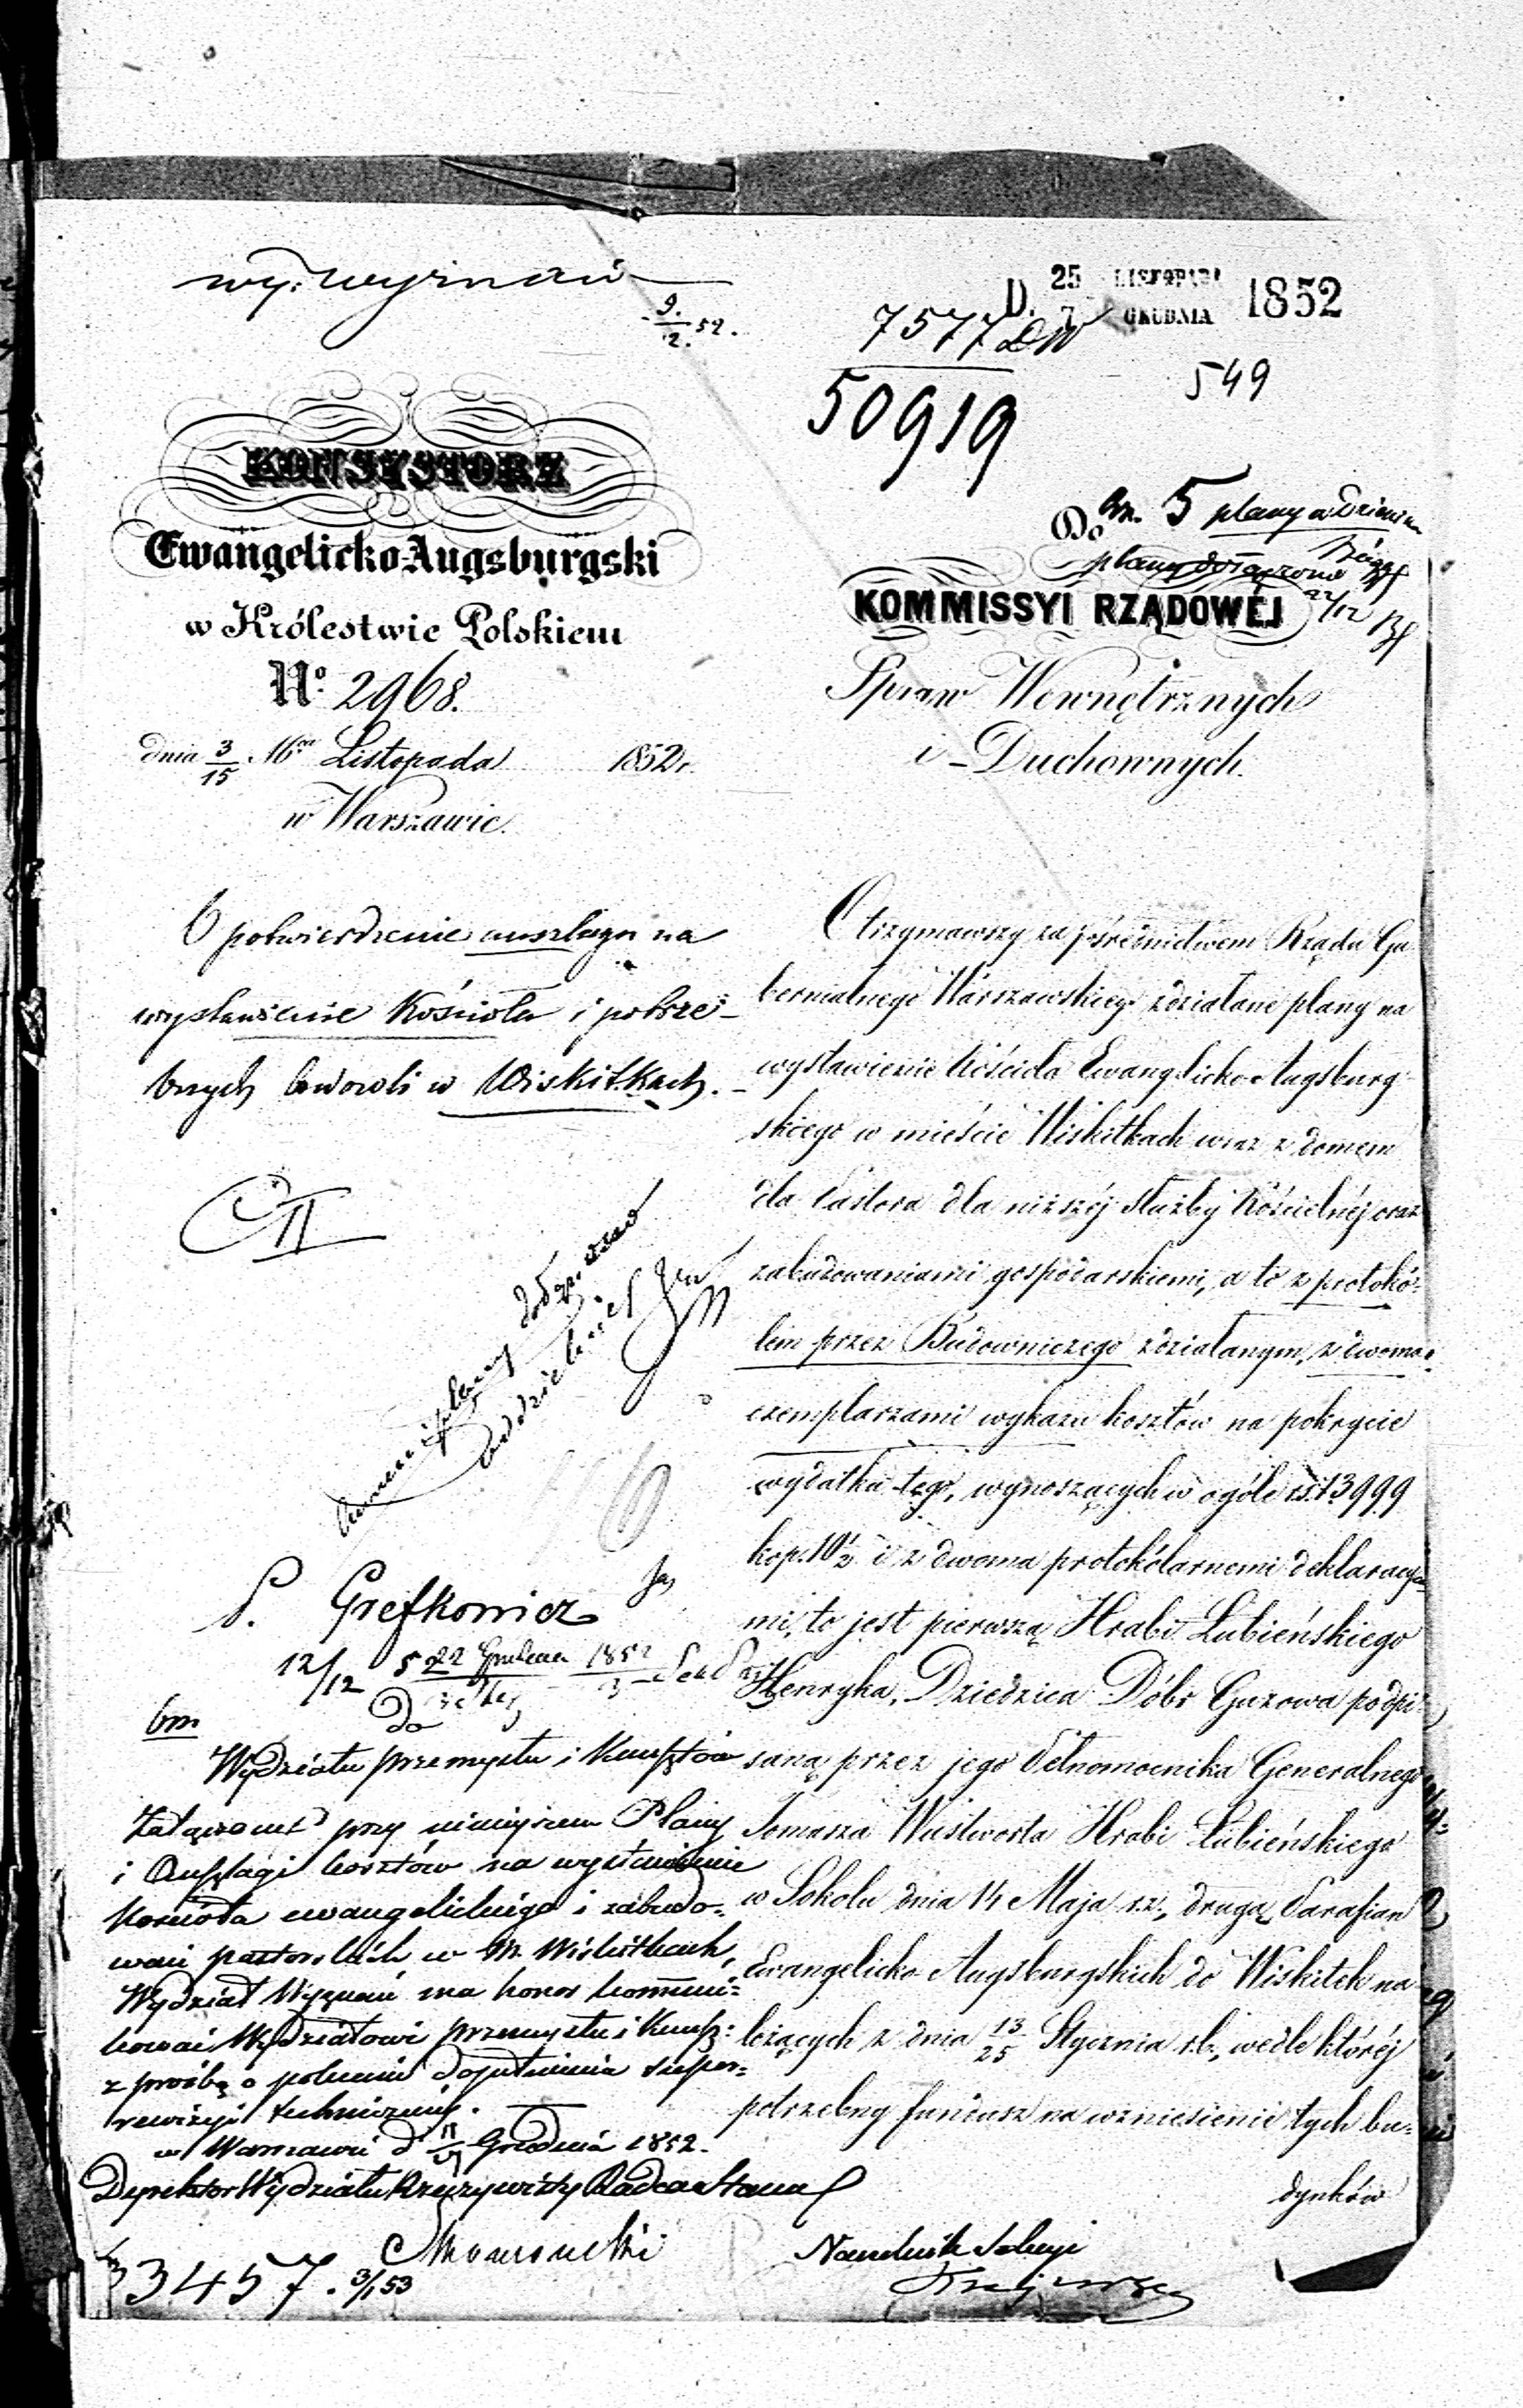 wyż. wyznań
9/12 52.
D. 25 LISTOPADA
7 GRUDNIA 1852
7577 DW
50919
549
KONSYSTORZ
Ewangelicko-Augsburgski
w Królestwie Polskiem
No. 2968.
dnia 3/15 Mca Listopada 1852 r.
w Warszawie.
Do
5 plany w
plany dołączone
22/12
KOMMISSYI RZĄDOWÉJ
Spraw Wewnętrznych
i Duchownych.
O potwierdzenie anszlagu na
wystawienie Kościoła i potrze-
bnych budowli w Wiskitkach.
II
P. Grefkowicz
12/12 5 22 Grudnia 1852
Do
Wydziału przemysłu i Kunsztów
Załączone przy niniejszem Plany
i Anszlagi kosztów na wystawienie
Kościoła ewangelickiego i zabudo-
wań pastorskich w M. Wiskitkach,
Wydział Wyznań ma honor kommuni-
kować Wydziałowi przemysłu i Kunsz:
z prośbą o polecenie dopełnienia super-
rewizyi technicznéj.
w Warszawie d Grudnia 1852.
Dyrektor Wydziału Rzeczywisty Radca Stanu
3457. 3/1 53
Otrzymawszy za pośrednictwem Rządu Gu-
bernialnego Warszawskiego zdziałane plany na
wystawienie Kościoła Ewangelicko-Augsburg-
skiego w mieście Wiskitkach wraz z domem
dla Pastora dla niższéj służby Kościelnéj oraz
zabudowaniami gospodarskiemi, a to z protokó-
łem przez Budowniczego zdziałanym, z dwoma
exemplarzami wykazu kosztów na pokrycie
wydatku tego, wynoszących w ogóle rs. 13999
kop. 10½ i z dwoma protokólarnemi deklaracya-
mi, to jest pierwszą Hrabi Łubieńskiego
Henryka, Dziedzica Dóbr Guzowa podpi-
saną przez jego Pełnomocnika Generalnego
Tomasza Wentworta Hrabi Łubieńskiego
w Sokolu dnia 14 Maja r.z., drugą Parafian
Ewangelicko-Augsburgskich do Wiskitek na-
leżących z dnia 13/25 Stycznia r.b., wedle któréj
potrzebny fundusz na wzniesienie tych bu-
dynków
Naczelnik Sekcyi